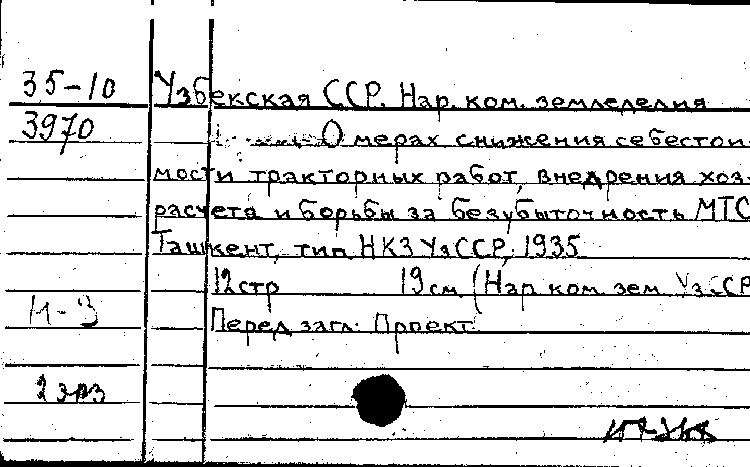 35-10 Узбекская ССР. Нар. ком. земледелия
3970 О мерах снижения себестои-
мости тракторных работ, внедрения хоз-
расчета и борьбы за безубыточность МТС
Ташкент, тип. НКЗ УзССР, 1935
12 стр 19 см (Нар ком зем УзССР
Перед загл: Проект
2 экз